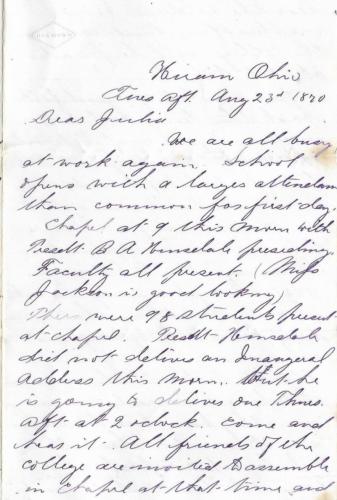 Hiram Ohio
Tues Aft. Aug 23d 1870
Dear Julia
We are all busy
at work again. School
opens with a larger attendan
than common for first day.
Chapel at 9 this morn with
Presdt B A Hinsdale presiding.
Faculty all present. (Miss
Jackson is good looking)
There were 98 students present
at chapel. Presdt Hinsdale
did not deliver an Inaugural
address this morn. But he
is going to deliver one Thurs.
aft at 2 oclock. Come and
hear it. All friends of the
college are invited to assemble
in chapel at that time and